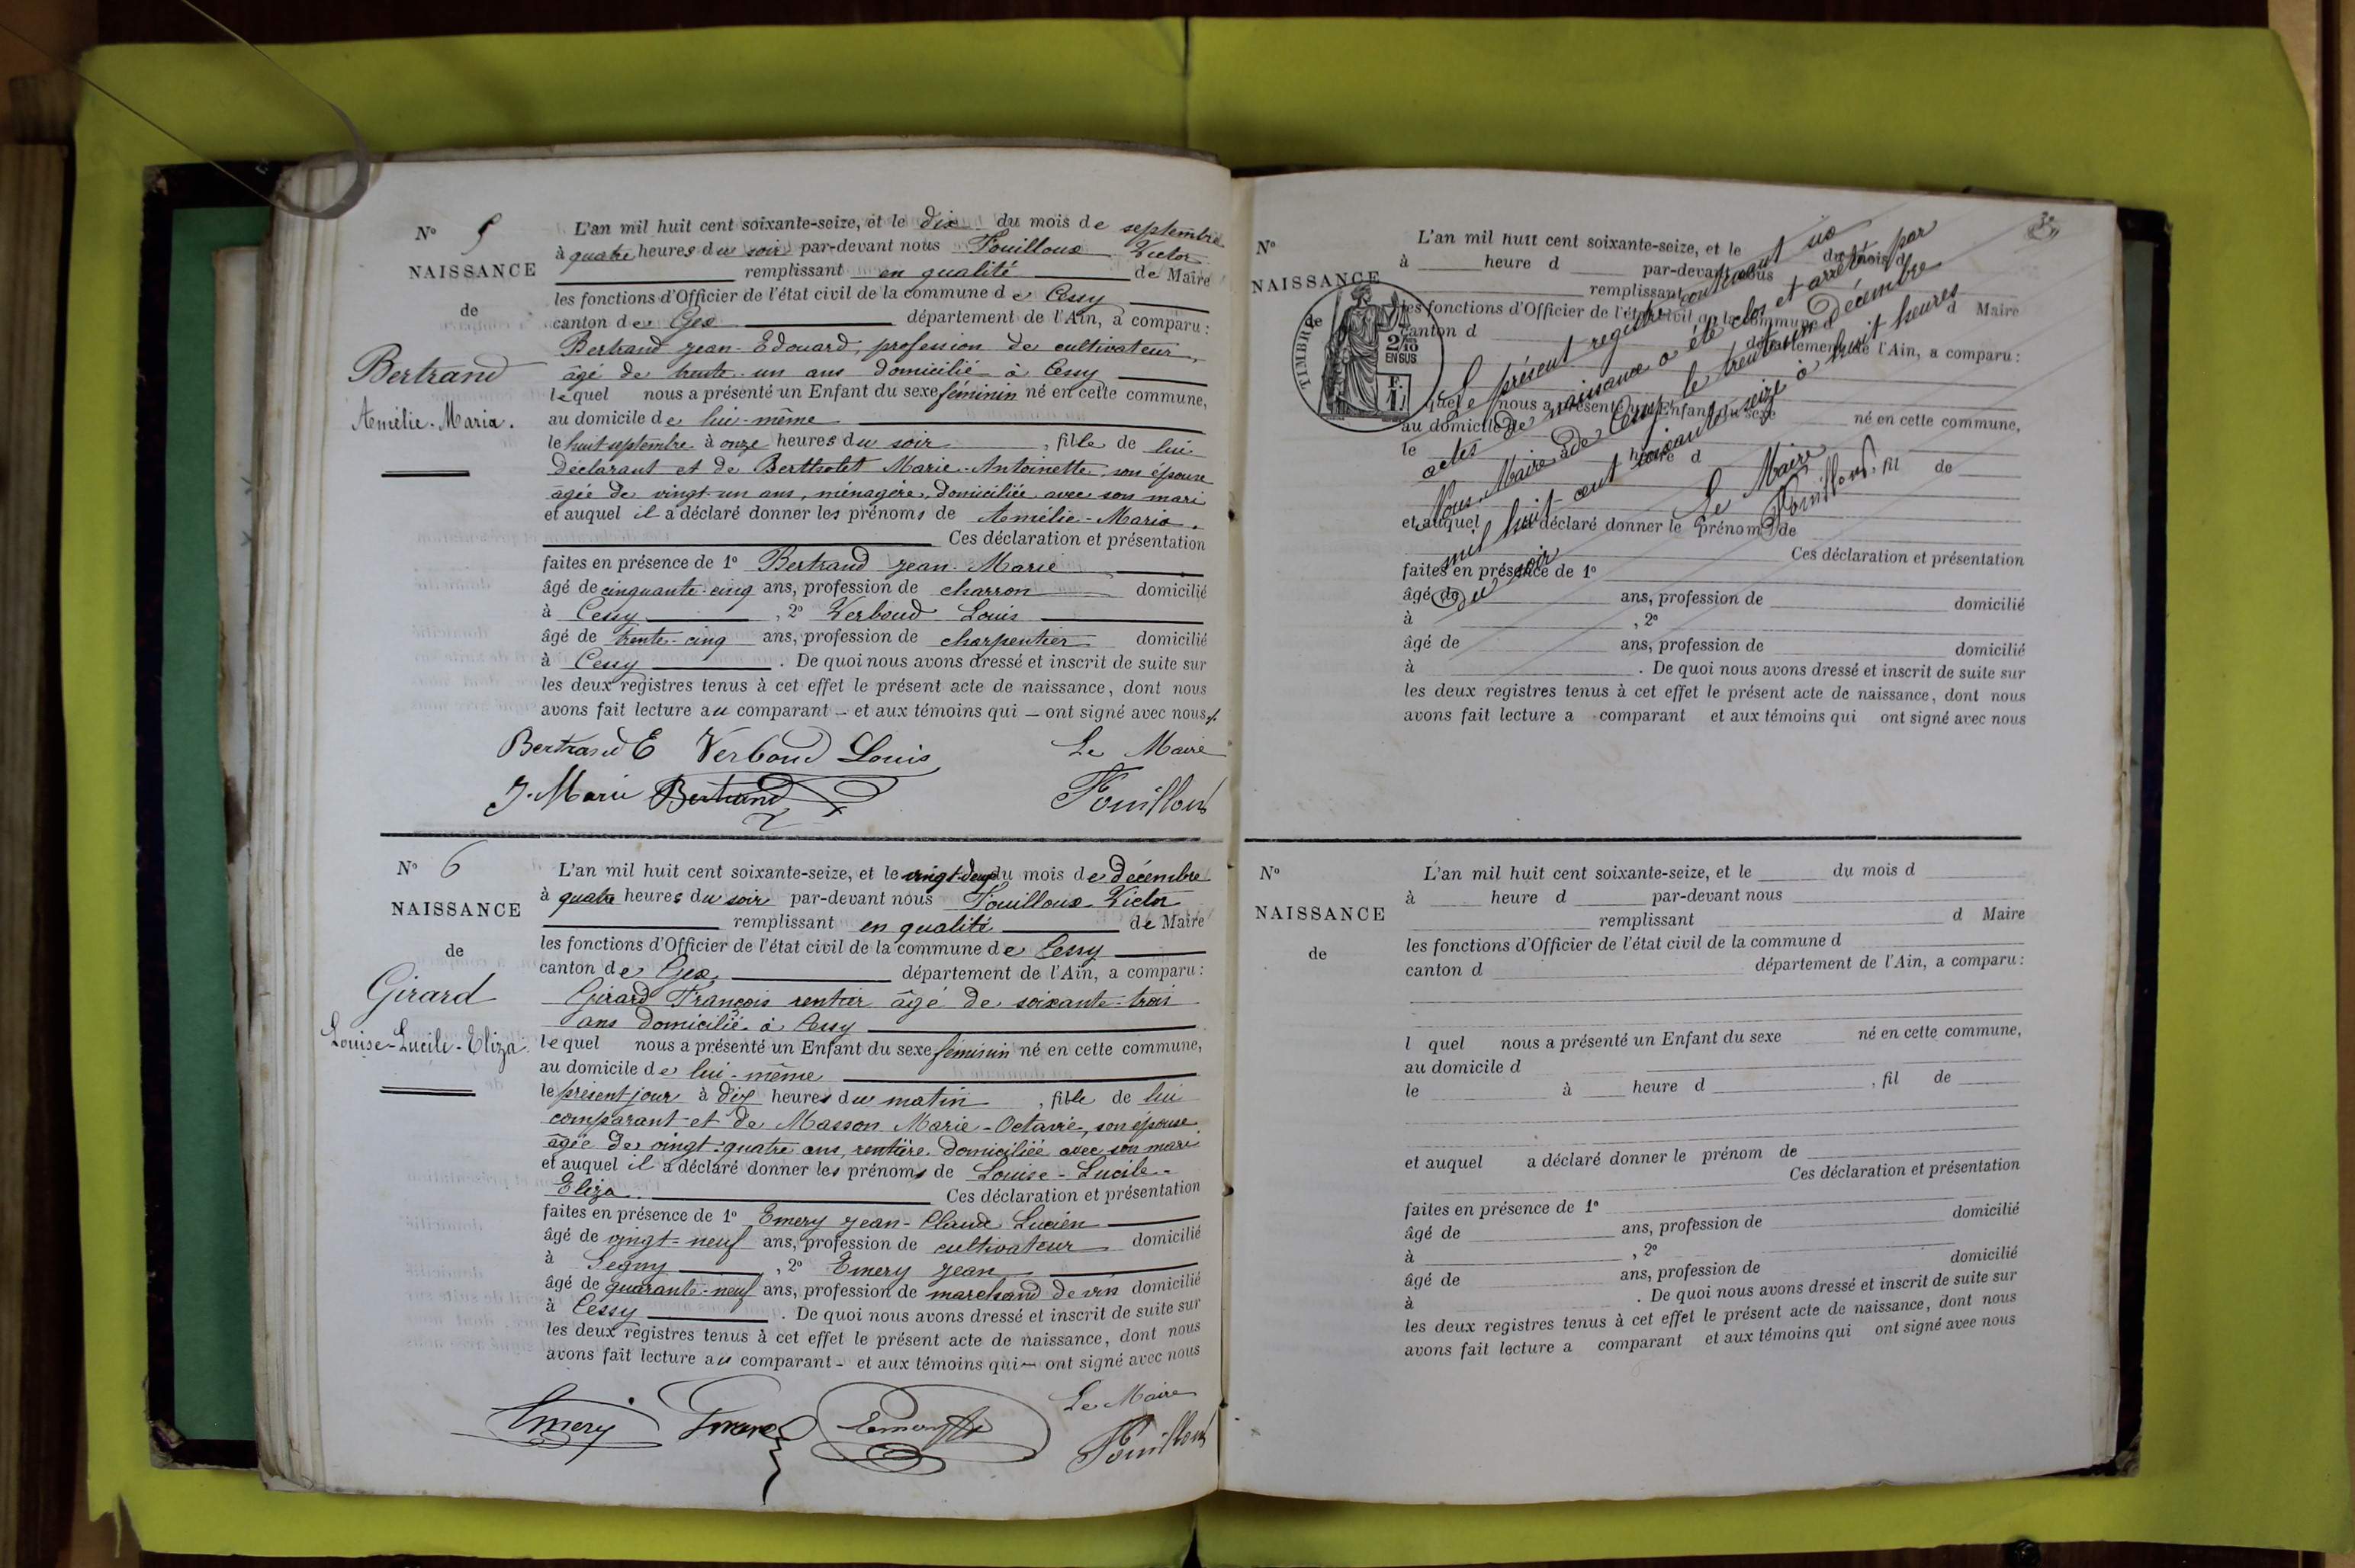 N° 5
NAISSANCE
de
Bertrand
Amélie-Maria.
L'an mil huit cent soixante-seize, et le dix du mois de septembre
à quatre heures du soir par-devant nous Fouilloux Victor
remplissant en qualité de Maire
les fonctions d'Officier de l'état civil de la commune de Cessy
canton de Gex département de l'Ain, a comparu :
Bertrand Jean-Edouard, profession de cultivateur,
âgé de trente-un ans domicilié à Cessy
lequel nous a présenté un Enfant du sexe féminin né en cette commune,
au domicile de lui-même
le huit septembre à onze heures du soir, fille de lui
déclarant et de Bertholet Marie-Antoinette, son épouse
âgée de vingt-un ans, ménagère, domiciliée avec son mari
et auquel il a déclaré donner les prénoms de Amélie-Maria.
Ces déclaration et présentation
faites en présence de 1° Bertrand Jean-Marie
âgé de cinquante-cinq ans, profession de charron domicilié
à Cessy, 2° Verboud Louis
âgé de trente-cinq ans, profession de charpentier domicilié
à Cessy. De quoi nous avons dressé et inscrit de suite sur
les deux registres tenus à cet effet le présent acte de naissance, dont nous
avons fait lecture au comparant – et aux témoins qui – ont signé avec nous.
Bertrand E Verboud Louis Le Maire
J. Marie Bertrand Fouilloux
N° 6
NAISSANCE
de
Girard
Louise-Lucile-Eliza.
L'an mil huit cent soixante-seize, et le vingt-deux du mois de décembre
à quatre heures du soir par-devant nous Fouilloux Victor
remplissant en qualité de Maire
les fonctions d'Officier de l'état civil de la commune de Cessy
canton de Gex département de l'Ain, a comparu :
Girard François rentier âgé de soixante-trois
ans domicilié à Cessy
lequel nous a présenté un Enfant du sexe féminin né en cette commune,
au domicile de lui-même
le présent jour à dix heures du matin, fille de lui
comparant et de Masson Marie-Octavie, son épouse
âgée de vingt-quatre ans, rentière domiciliée avec son mari
et auquel il a déclaré donner les prénoms de Louise-Lucile-
Eliza. Ces déclaration et présentation
faites en présence de 1° Emery Jean-Claude Lucien
âgé de vingt-neuf ans, profession de cultivateur domicilié
à Segny, 2° Emery Jean
âgé de quarante-neuf ans, profession de marchand de vin domicilié
à Cessy. De quoi nous avons dressé et inscrit de suite sur
les deux registres tenus à cet effet le présent acte de naissance, dont nous
avons fait lecture au comparant – et aux témoins qui – ont signé avec nous
Le Maire
Emery Fouilloux
N°
NAISSANCE
de
TIMBRE
2/10
EN SUS
F.
1
L'an mil huit cent soixante-seize, et le du mois d
à heure d par-devant nous
remplissant d Maire
les fonctions d'Officier de l'état civil de la commune d
canton d département de l'Ain, a comparu :
l quel nous a présenté un Enfant du sexe né en cette commune,
au domicile d
le à heure d, fil de
et auquel a déclaré donner le prénom de
Ces déclaration et présentation
faites en présence de 1°
âgé de ans, profession de domicilié
à, 2°
âgé de ans, profession de domicilié
à. De quoi nous avons dressé et inscrit de suite sur
les deux registres tenus à cet effet le présent acte de naissance, dont nous
avons fait lecture a comparant et aux témoins qui ont signé avec nous
Le présent registre contenant six
actes de naissance a été clos et arrêté par
Nous Maire de Cessy le trente un Décembre
mil huit cent soixante seize à huit heures
du soir
Le Maire
Fouilloux
N°
NAISSANCE
de
L'an mil huit cent soixante-seize, et le du mois d
à heure d par-devant nous
remplissant d Maire
les fonctions d'Officier de l'état civil de la commune d
canton d département de l'Ain, a comparu :
l quel nous a présenté un Enfant du sexe né en cette commune,
au domicile d
le à heure d, fil de
et auquel a déclaré donner le prénom de
Ces déclaration et présentation
faites en présence de 1°
âgé de ans, profession de domicilié
à, 2°
âgé de ans, profession de domicilié
à. De quoi nous avons dressé et inscrit de suite sur
les deux registres tenus à cet effet le présent acte de naissance, dont nous
avons fait lecture a comparant et aux témoins qui ont signé avec nous